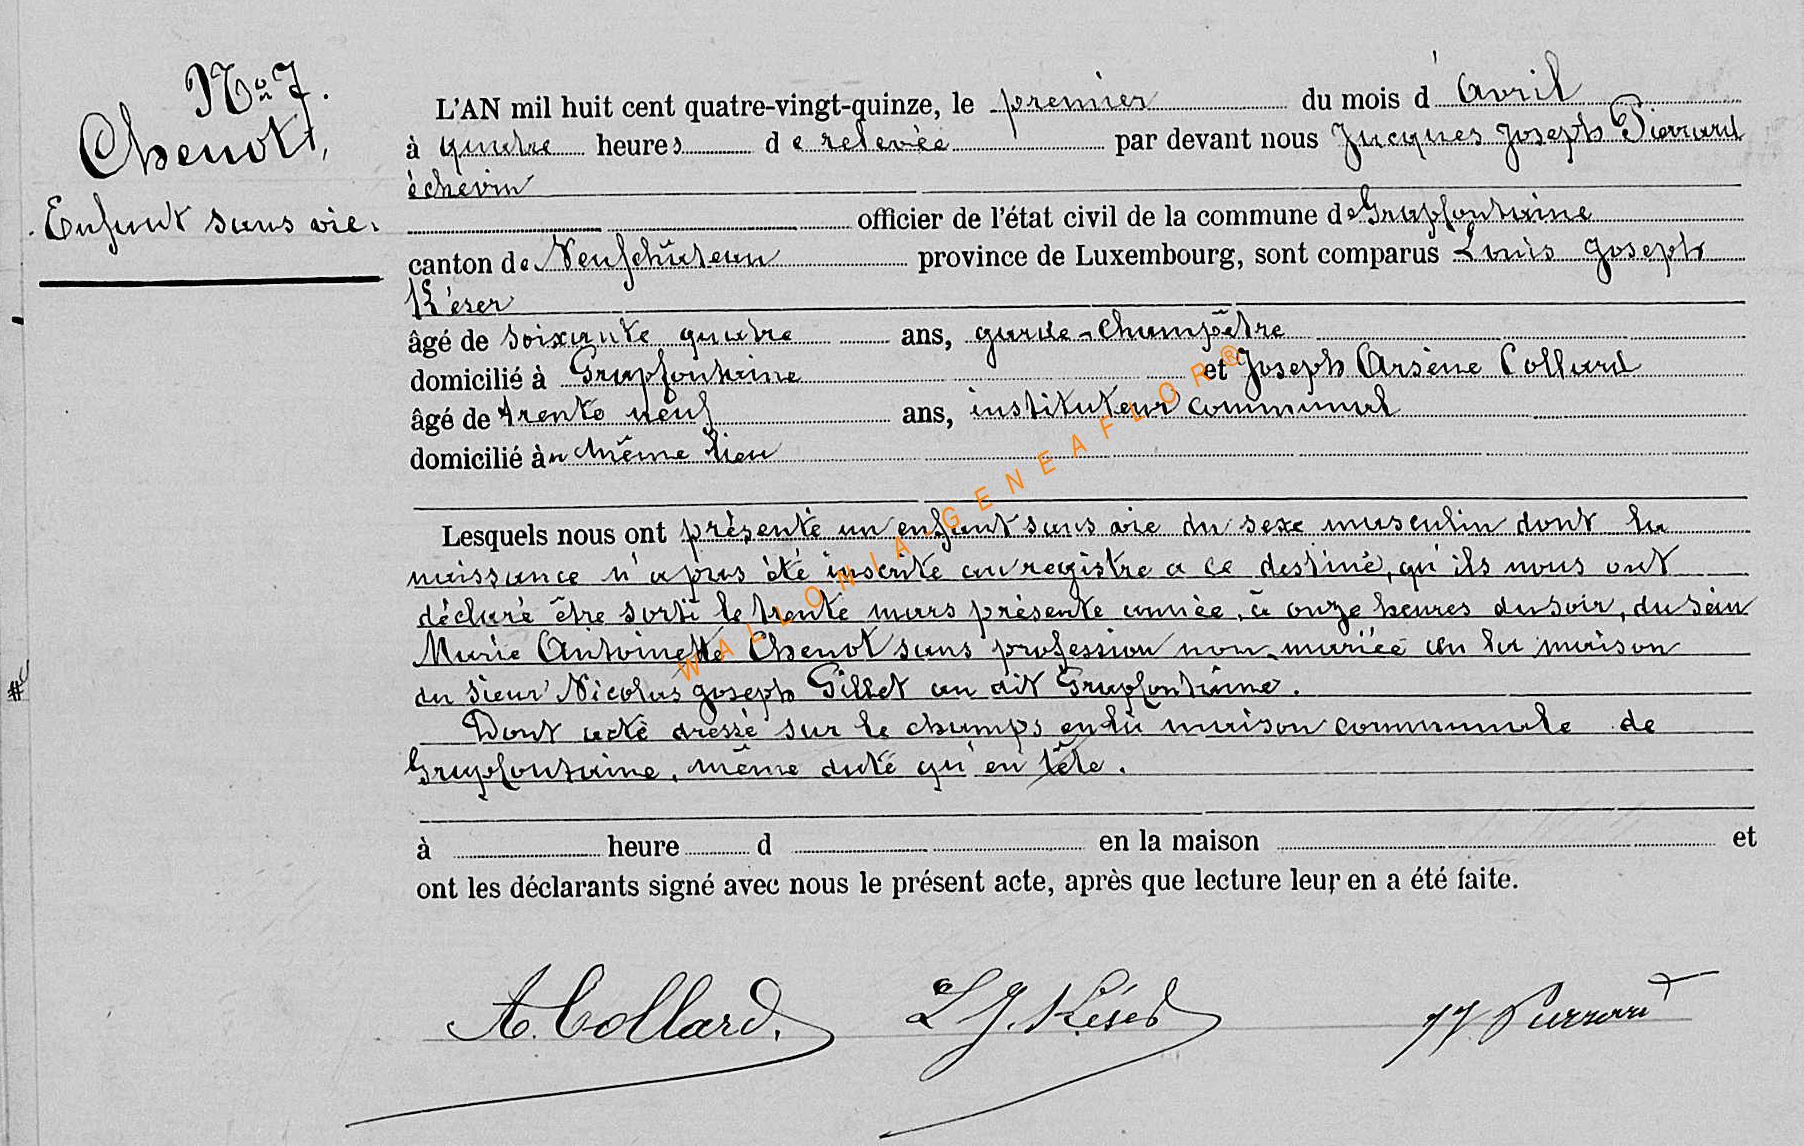 N° 7.
Chenot,
Enfant sans vie.
L'AN mil huit cent quatre-vingt-quinze, le premier du mois d'Avril
à quatre heures de relevée par devant nous Jacques Joseph Pierrard
échevin
officier de l'état civil de la commune de Grapfontaine
canton de Neufchâteau province de Luxembourg, sont comparus Louis Joseph
Késer
âgé de soixante quatre ans, garde-champêtre
domicilié à Grapfontaine et Joseph Arsène Collard
âgé de trente neuf ans, instituteur communal
domicilié au même lieu
Lesquels nous ont présenté un enfant sans vie du sexe masculin dont la
naissance n'a pas été inscrite au registre a ce destiné, qu'ils nous ont
déclaré être sorti le trente mars présente année, à onze heures du soir, du sein
Marie Antoinette Chenot sans profession non-mariée en la maison
du sieur Nicolas Joseph Gillet au dit Grapfontaine.
Dont acte dressé sur le champs en la maison communale de
Grapfontaine, même date qu'en tête.
à heure d en la maison et
ont les déclarants signé avec nous le présent acte, après que lecture leur en a été faite.
A. Collard. L J. Késer JJ Pierrard
WALLONIA-GENEAFLOR®